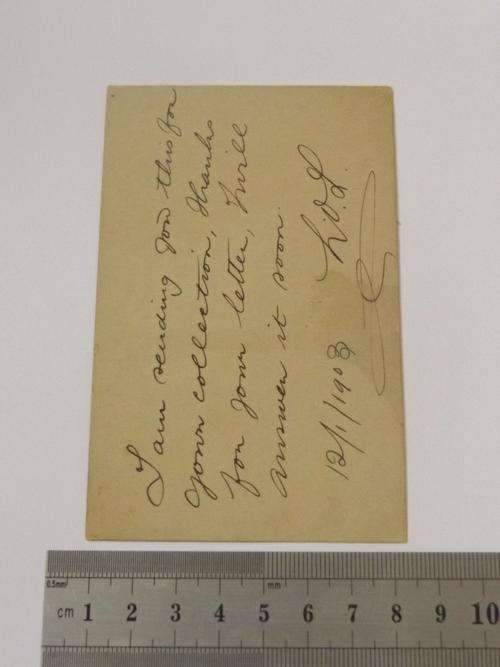 I am sending you this for
your collection, Thanks
for your letter, I will
answer it soon.
L.V.L.
12/1/1903
0.5mm
mm
cm 1 2 3 4 5 6 7 8 9 10